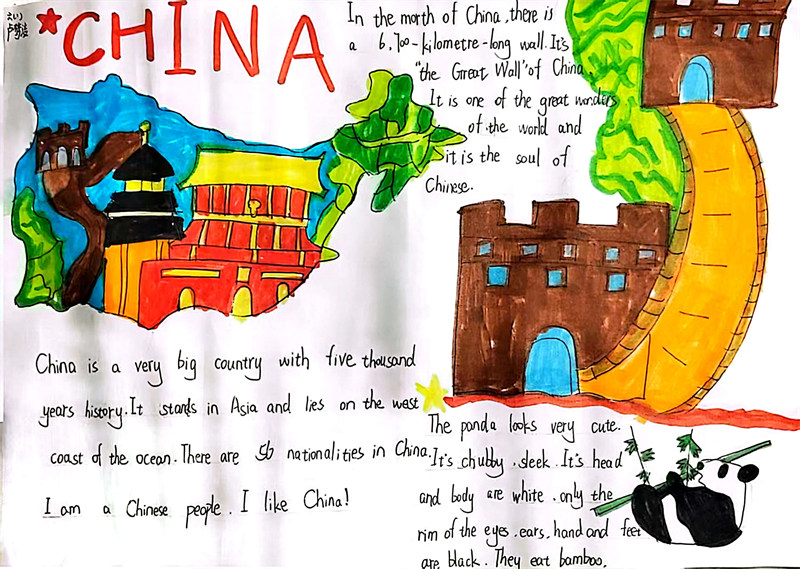 CHINA
In the morth of China, there is
a 6,700-kilometre-long wall. It's
"the Great Wall" of China.
It is one of the great wonders
of the world and
it is the soul of
Chinese.
China is a very big country with five thousand
years history. It stands in Asia and lies on the west
coast of the ocean. There are 56 nationalities in China.
I am a Chinese people. I like China!
The panda looks very cute.
It's chubby. sleek. It's head
and body are white. only the
rim of the eyes. ears. hand and feet
are black. They eat bamboo.